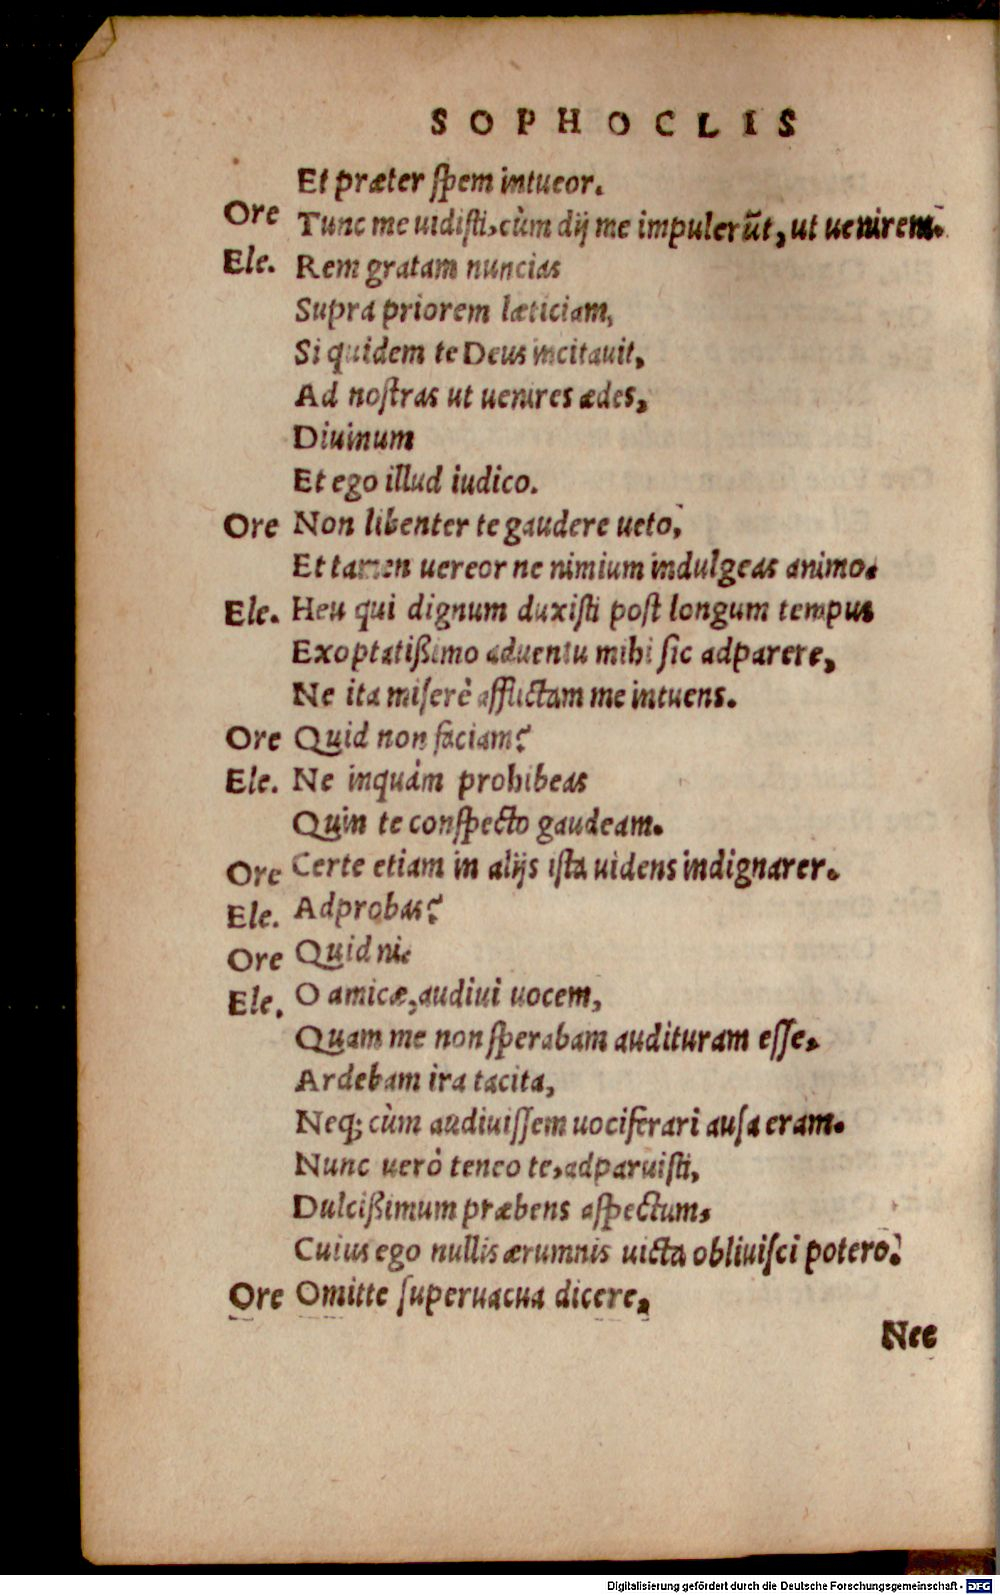 SOPHOCLIS
Et præter ſpem intueor.
Ore Tunc me uidiſti, cùm dij me impulerũt, ut uenirem.
Ele. Rem gratam nuncias
Supra priorem læticiam,
Si quidem te Deus incitauit,
Ad noſtras ut uenires ædes,
Diuinum
Et ego illud iudico.
Ore Non libenter te gaudere ueto,
Et tamen uereor ne nimium indulgeas animo.
Ele. Heu qui dignum duxiſti poſt longum tempus
Exoptatißimo aduentu mihi ſic adparere,
Ne ita miſerè afflictam me intuens.
Ore Quid non faciam?
Ele. Ne inquàm prohibeas
Quin te conſpecto gaudeam.
Ore Certe etiam in alijs iſta uidens indignarer.
Ele. Adprobas?
Ore Quid ni.
Ele. O amicæ, audiui uocem,
Quam me non ſperabam audituram eſſe.
Ardebam ira tacita,
Neq; cùm audiuiſſem uociferari auſa eram.
Nunc uerò teneo te, adparuiſti,
Dulcißimum præbens aſpectum,
Cuius ego nullis ærumnis uicta obliuiſci potero.
Ore Omitte ſuperuacua dicere,
Nec
Digitalisierung gefördert durch die Deutsche Forschungsgemeinschaft - DFG